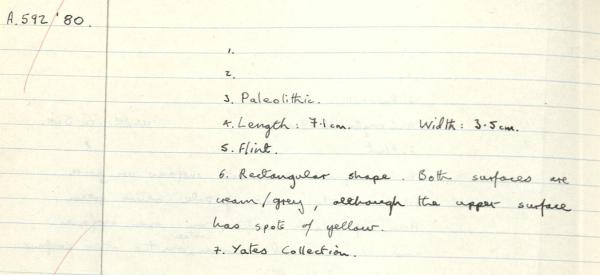 A.592 '80.
1.
2.
3. Paleolithic.
4. Length: 7.1cm. Width: 3.5cm.
5. Flint.
6. Rectangular shape. Both surfaces are
cream/grey, although the upper surface
has spots of yellow.
7. Yates Collection.